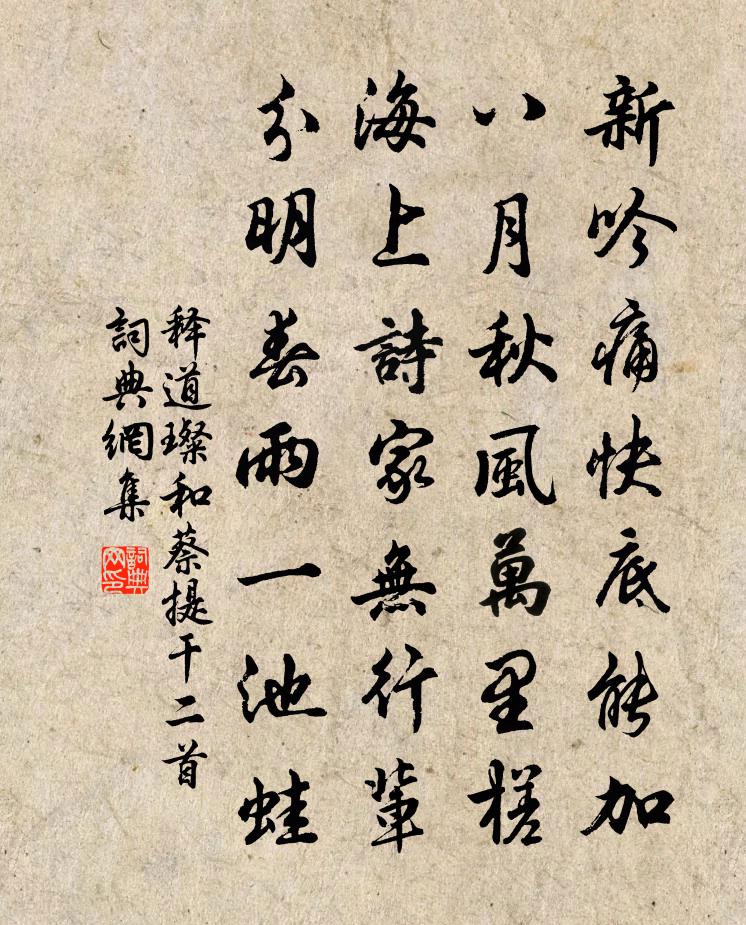 新吟痛快底能加
八月秋風萬里槎
海上詩家無行輩
分明春雨一池蛙
释道璨和蔡提干二首
詞典網集
詞典网印